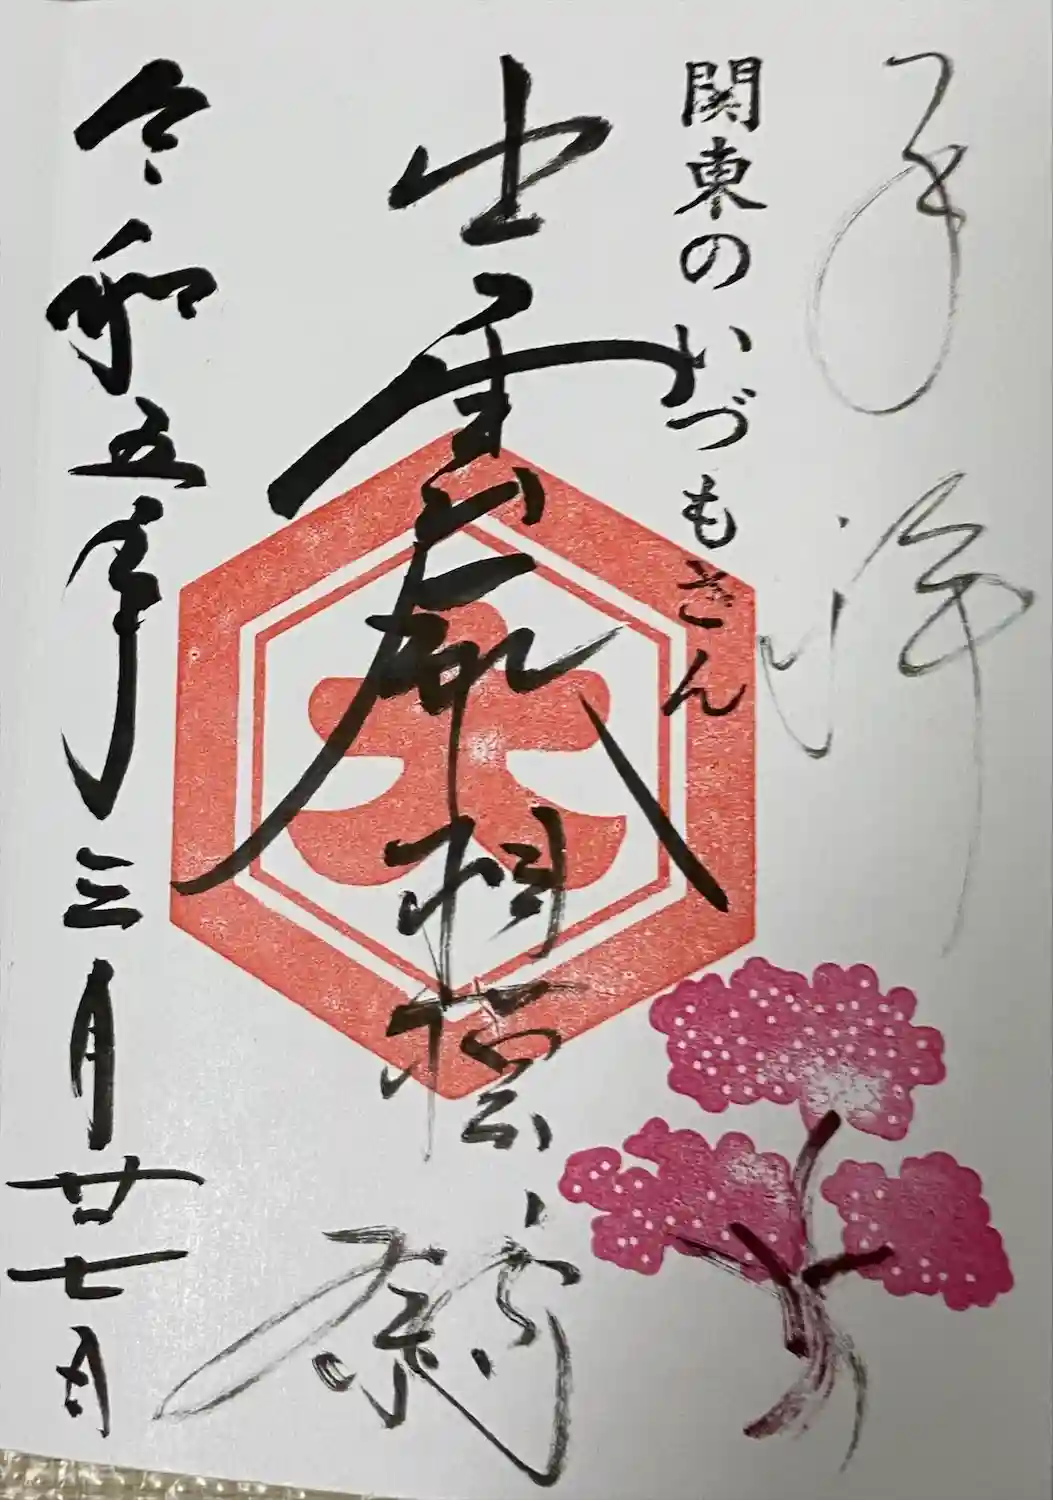 奉拝
関東のいづもさん
出雲大社相模分祠
令和五年三月廿七日
大